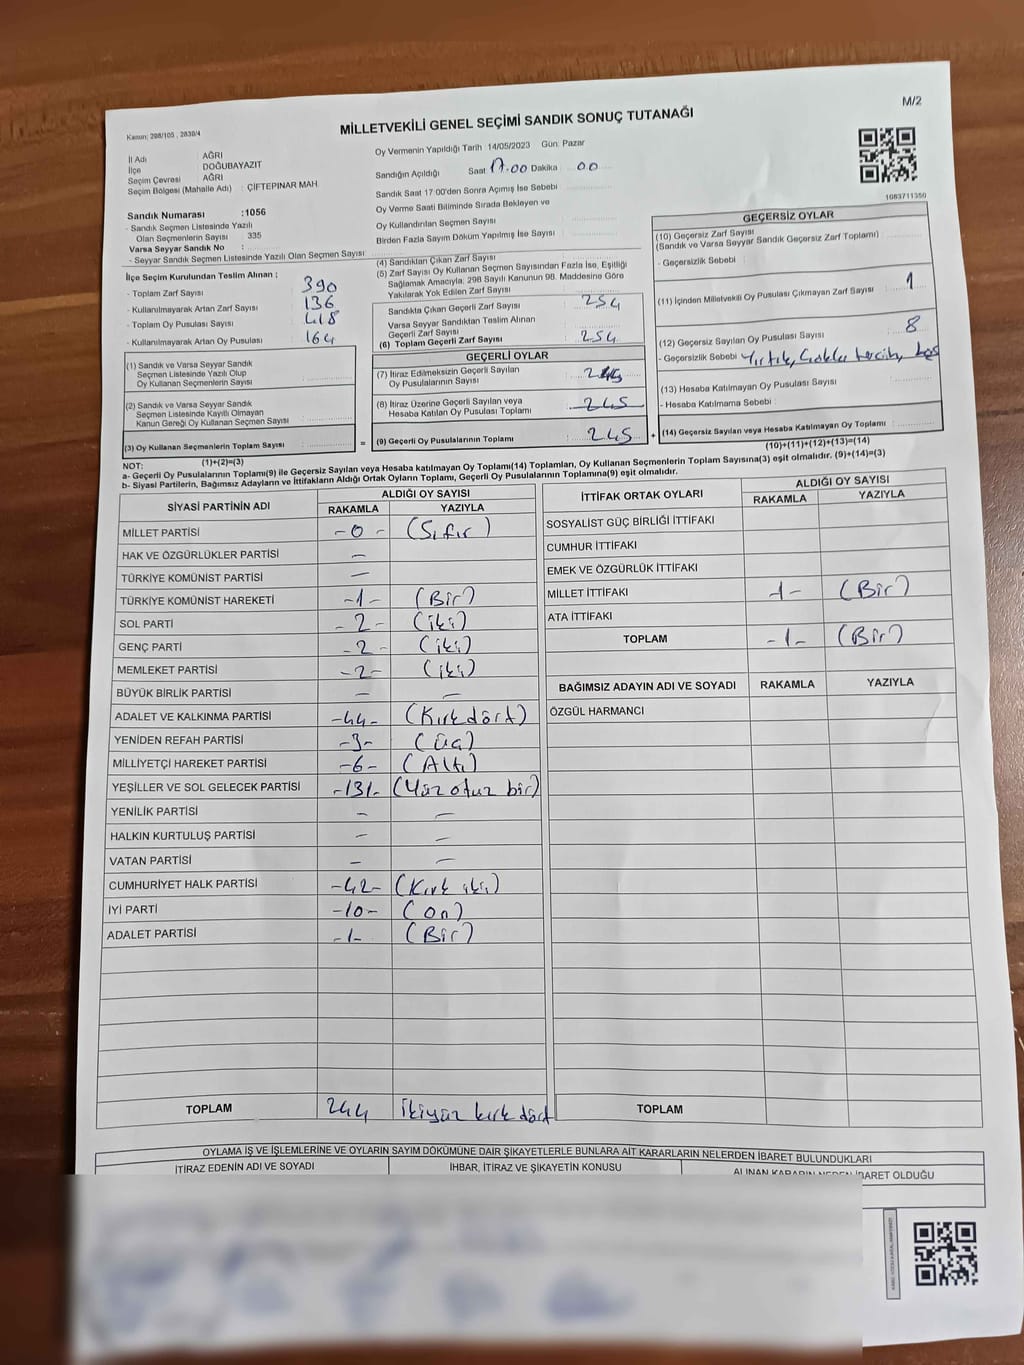 M/2
Kanun: 298/105 , 2839/4
MİLLETVEKİLİ GENEL SEÇİMİ SANDIK SONUÇ TUTANAĞI
İl Adı : AĞRI
İlçe : DOĞUBAYAZIT
Seçim Çevresi : AĞRI
Seçim Bölgesi (Mahalle Adı) : ÇİFTEPINAR MAH.
Sandık Numarası :1056
- Sandık Seçmen Listesinde Yazılı
Olan Seçmenlerin Sayısı : 335
Varsa Seyyar Sandık No :
- Seyyar Sandık Seçmen Listesinde Yazılı Olan Seçmen Sayısı
Oy Vermenin Yapıldığı Tarih :14/05/2023 Gün: Pazar
Sandığın Açıldığı Saat 17.00 Dakika : 00
Sandık Saat 17:00'den Sonra Açımış İse Sebebi
Oy Verme Saati Bitiminde Sırada Bekleyen ve
Oy Kullandırılan Seçmen Sayısı
Birden Fazla Sayım Döküm Yapılmış İse Sayısı
1083711350
İlçe Seçim Kurulundan Teslim Alınan ;
- Toplam Zarf Sayısı 390
- Kullanılmayarak Artan Zarf Sayısı 136
- Toplam Oy Pusulası Sayısı 418
- Kullanılmayarak Artan Oy Pusulası 164
(1) Sandık ve Varsa Seyyar Sandık
Seçmen Listesinde Yazılı Olup
Oy Kullanan Seçmenlerin Sayısı
(2) Sandık ve Varsa Seyyar Sandık
Seçmen Listesinde Kayıtlı Olmayan
Kanun Gereği Oy Kullanan Seçmen Sayısı
(3) Oy Kullanan Seçmenlerin Toplam Sayısı
(1)+(2)=(3)
(4) Sandıktan Çıkan Zarf Sayısı
(5) Zarf Sayısı Oy Kullanan Seçmen Sayısından Fazla İse, Eşitliği
Sağlamak Amacıyla, 298 Sayılı Kanunun 98. Maddesine Göre
Yakılarak Yok Edilen Zarf Sayısı
Sandıkta Çıkan Geçerli Zarf Sayısı 254
Varsa Seyyar Sandıktan Teslim Alınan
Geçerli Zarf Sayısı
(6) Toplam Geçerli Zarf Sayısı 254
GEÇERLİ OYLAR
(7) İtiraz Edilmeksizin Geçerli Sayılan
Oy Pusulalarının Sayısı
(8) İtiraz Üzerine Geçerli Sayılan veya
Hesaba Katılan Oy Pusulası Toplamı 245
= (9) Geçerli Oy Pusulalarının Toplamı : 245 +
GEÇERSİZ OYLAR
(10) Geçersiz Zarf Sayısı
(Sandık ve Varsa Seyyar Sandık Geçersiz Zarf Toplamı)
- Geçersizlik Sebebi :
(11) İçinden Milletvekili Oy Pusulası Çıkmayan Zarf Sayısı 1
(12) Geçersiz Sayılan Oy Pusulası Sayısı 8
- Geçersizlik Sebebi : Yırtık, tercih, boş
(13) Hesaba Katılmayan Oy Pusulası Sayısı
- Hesaba Katılmama Sebebi :
(14) Geçersiz Sayılan veya Hesaba Katılmayan Oy Toplamı
(10)+(11)+(12)+(13)=(14)
NOT:
a- Geçerli Oy Pusulalarının Toplamı(9) ile Geçersiz Sayılan veya Hesaba katılmayan Oy Toplamı(14) Toplamları, Oy Kullanan Seçmenlerin Toplam Sayısına(3) eşit olmalıdır. (9)+(14)=(3)
b- Siyasi Partilerin, Bağımsız Adayların ve İttifakların Aldığı Ortak Oyların Toplamı, Geçerli Oy Pusulalarının Toplamına(9) eşit olmalıdır.
SİYASİ PARTİNİN ADI ALDIĞI OY SAYISI
RAKAMLA YAZIYLA
MİLLET PARTİSİ -0- (Sıfır)
HAK VE ÖZGÜRLÜKLER PARTİSİ -
TÜRKİYE KOMÜNİST PARTİSİ -
TÜRKİYE KOMÜNİST HAREKETİ -1- (Bir)
SOL PARTİ -2- (iki)
GENÇ PARTİ -2- (iki)
MEMLEKET PARTİSİ -2- (iki)
BÜYÜK BİRLİK PARTİSİ - -
ADALET VE KALKINMA PARTİSİ -44- (Kırk dört)
YENİDEN REFAH PARTİSİ -3- (Üç)
MİLLİYETÇİ HAREKET PARTİSİ -6- (Altı)
YEŞİLLER VE SOL GELECEK PARTİSİ -131- (Yüz otuz bir)
YENİLİK PARTİSİ - -
HALKIN KURTULUŞ PARTİSİ - -
VATAN PARTİSİ - -
CUMHURİYET HALK PARTİSİ -42- (Kırk iki)
İYİ PARTİ -10- (On)
ADALET PARTİSİ -1- (Bir)
TOPLAM 244 İkiyüz kırk dört
İTTİFAK ORTAK OYLARI ALDIĞI OY SAYISI
RAKAMLA YAZIYLA
SOSYALİST GÜÇ BİRLİĞİ İTTİFAKI
CUMHUR İTTİFAKI
EMEK VE ÖZGÜRLÜK İTTİFAKI
MİLLET İTTİFAKI -1- (Bir)
ATA İTTİFAKI
TOPLAM -1- (Bir)
BAĞIMSIZ ADAYIN ADI VE SOYADI RAKAMLA YAZIYLA
ÖZGÜL HARMANCI
TOPLAM
OYLAMA İŞ VE İŞLEMLERİNE VE OYLARIN SAYIM DÖKÜMÜNE DAİR ŞİKAYETLERLE BUNLARA AİT KARARLARIN NELERDEN İBARET BULUNDUKLARI
İTİRAZ EDENİN ADI VE SOYADI İHBAR, İTİRAZ VE ŞİKAYETİN KONUSU ALINAN KARARIN NEDEN İBARET OLDUĞU